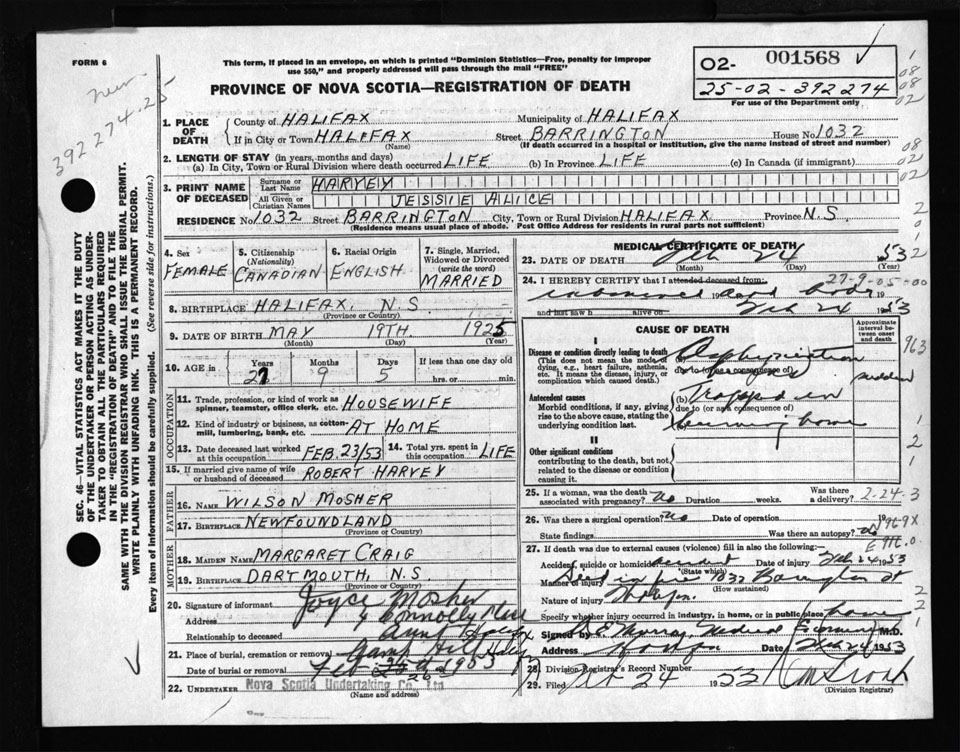 FORM 6
This form, if placed in an envelope, on which is printed "Dominion Statistics—Free, penalty for improper
use $50," and properly addressed will pass through the mail "FREE"
PROVINCE OF NOVA SCOTIA—REGISTRATION OF DEATH
02- 001568
25-02-392274
For use of the Department only
392274-25
1. PLACE OF DEATH
County of HALIFAX Municipality of HALIFAX
If in City or Town HALIFAX Street BARRINGTON House No 1032
(Name) (If death occurred in a hospital or institution, give the name instead of street and number)
2. LENGTH OF STAY (in years, months and days)
(a) In City, Town or Rural Division where death occurred LIFE (b) In Province LIFE (c) In Canada (if immigrant)
3. PRINT NAME OF DECEASED
Surname or Last Name HARVEY
All Given or Christian Names JESSIE ALICE
RESIDENCE No 1032 Street BARRINGTON City, Town or Rural Division HALIFAX Province N.S.
(Residence means usual place of abode. Post Office Address for residents in rural parts not sufficient)
4. Sex FEMALE
5. Citizenship (Nationality) CANADIAN
6. Racial Origin ENGLISH
7. Single, Married, Widowed or Divorced (write the word) MARRIED
8. BIRTHPLACE HALIFAX, N.S.
(Province or Country)
9. DATE OF BIRTH MAY 19TH. 1925
(Month) (Day) (Year)
10. AGE in Years 27 Months 9 Days 5 If less than one day old
hrs. or min.
OCCUPATION
11. Trade, profession, or kind of work as spinner, teamster, office clerk, etc. HOUSEWIFE
12. Kind of industry or business, as cotton-mill, lumbering, bank, etc. AT HOME
13. Date deceased last worked at this occupation FEB. 23/53
14. Total yrs. spent in this occupation LIFE
15. If married give name of wife or husband of deceased ROBERT HARVEY
FATHER
16. NAME WILSON MOSHER
17. BIRTHPLACE NEWFOUNDLAND
(Province or Country)
MOTHER
18. MAIDEN NAME MARGARET CRAIG
19. BIRTHPLACE DARTMOUTH, N.S.
(Province or Country)
20. Signature of informant Joyce Mosher
Address Connolly
Relationship to deceased Aunt
21. Place of burial, cremation or removal Camp Hill
Date of burial or removal Feb 26 1953
22. UNDERTAKER Nova Scotia Undertaking Co., Ltd
(Name and address)
MEDICAL CERTIFICATE OF DEATH
23. DATE OF DEATH Feb 24 1953
(Month) (Day) (Year)
24. I HEREBY CERTIFY that I attended deceased from:
27-9-05-00
examined dead body
and last saw h alive on Feb 24 1953
CAUSE OF DEATH
Approximate interval between onset and death
I
Disease or condition directly leading to death
(This does not mean the mode of dying, e.g., heart failure, asthenia, etc. It means the disease, injury, or complication which caused death.)
(a) Asphyxiation
due to (or as a consequence of)
sudden
Antecedent causes
Morbid conditions, if any, giving rise to the above cause, stating the underlying condition last.
(b) Trapped in
due to (or as a consequence of)
burning home
II
Other significant conditions
contributing to the death, but not related to the disease or condition causing it.
25. If a woman, was the death associated with pregnancy? no Duration weeks. Was there a delivery?
2-24-3
26. Was there a surgical operation? no Date of operation 19
State findings Was there an autopsy? no
27. If death was due to external causes (violence) fill in also the following:—
Accident, suicide or homicide accident Date of injury Feb 24 1953
(State which)
Manner of injury Died in fire 1032 Barrington St
(How sustained)
Nature of injury
Specify whether injury occurred in industry, in home, or in public place home
Signed by Murray, Medical Examiner M.D.
Address Halifax Date Feb 24 1953
28. Division Registrar's Record Number
29. Filed Feb 24 1953
(Division Registrar)
SEC. 46—VITAL STATISTICS ACT MAKES IT THE DUTY
OF THE UNDERTAKER OR PERSON ACTING AS UNDER-
TAKER TO OBTAIN ALL THE PARTICULARS REQUIRED
IN THE "REGISTRATION OF DEATH" AND TO FILE THE
SAME WITH THE DIVISION REGISTRAR WHO SHALL ISSUE THE BURIAL PERMIT.
WRITE PLAINLY WITH UNFADING INK. THIS IS A PERMANENT RECORD.
Every item of information should be carefully supplied. (See reverse side for instructions.)